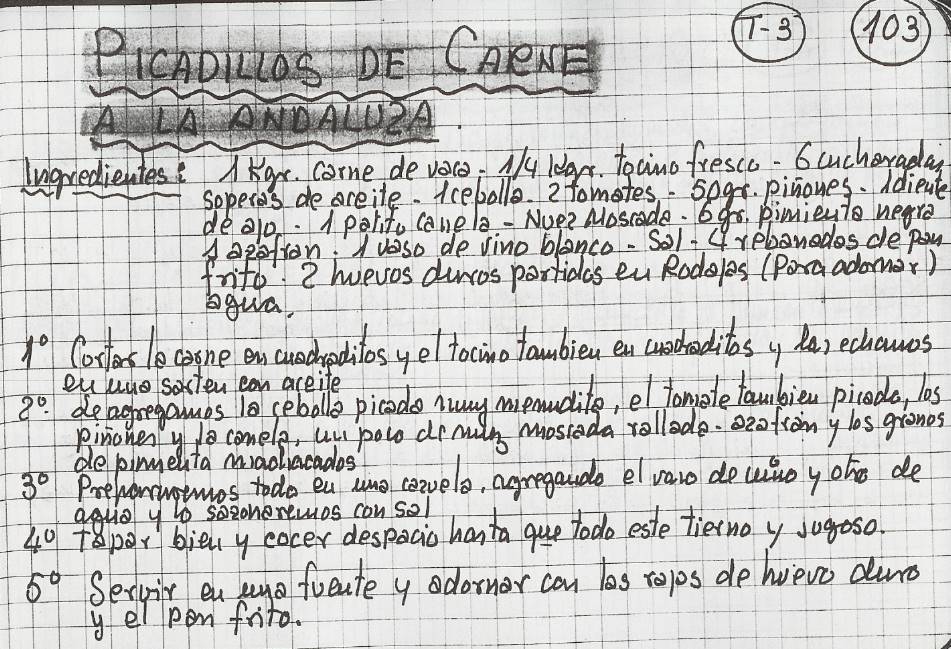 T-3 103
PICADILLOS DE CARNE
A LA ANDALUZA.
Ingredientes: 1 Kgr. carne de vaca - 1/4 Kgr. tocino fresco - 6 cucharadas
soperas de aceite - 1 cebolla. 2 tomates - 50 gr. piñones - 1 diente
de ajo. - 1 palito canela - Nuez Moscada - 6 gr. pimienta negra
1 azafran. 1 vaso de vino blanco - Sal - 4 rebanadas de pan
frito. 2 huevos duros partidos en Rodajas (Para adornar)
agua.
1º Cortar la carne en cuadraditos y el tocino tambien en cuadraditos y las echamos
en una sarten con aceite
2º. de agregamos la cebolla picada muy menudita, el tomate tambien picado, los
piñones y la canela, un poco de nuez moscada rallada - azafrán y los granos
de pimienta machacados
3º Prepararemos todo en una cazuela, agregando el vaso de vino y otro de
agua y lo sazonaremos con sal
4º Tapar bien y cocer despacio hasta que todo este tierno y jugoso.
5º Servir en una fuente y adornar con las rajas de huevo duro
y el pan frito.